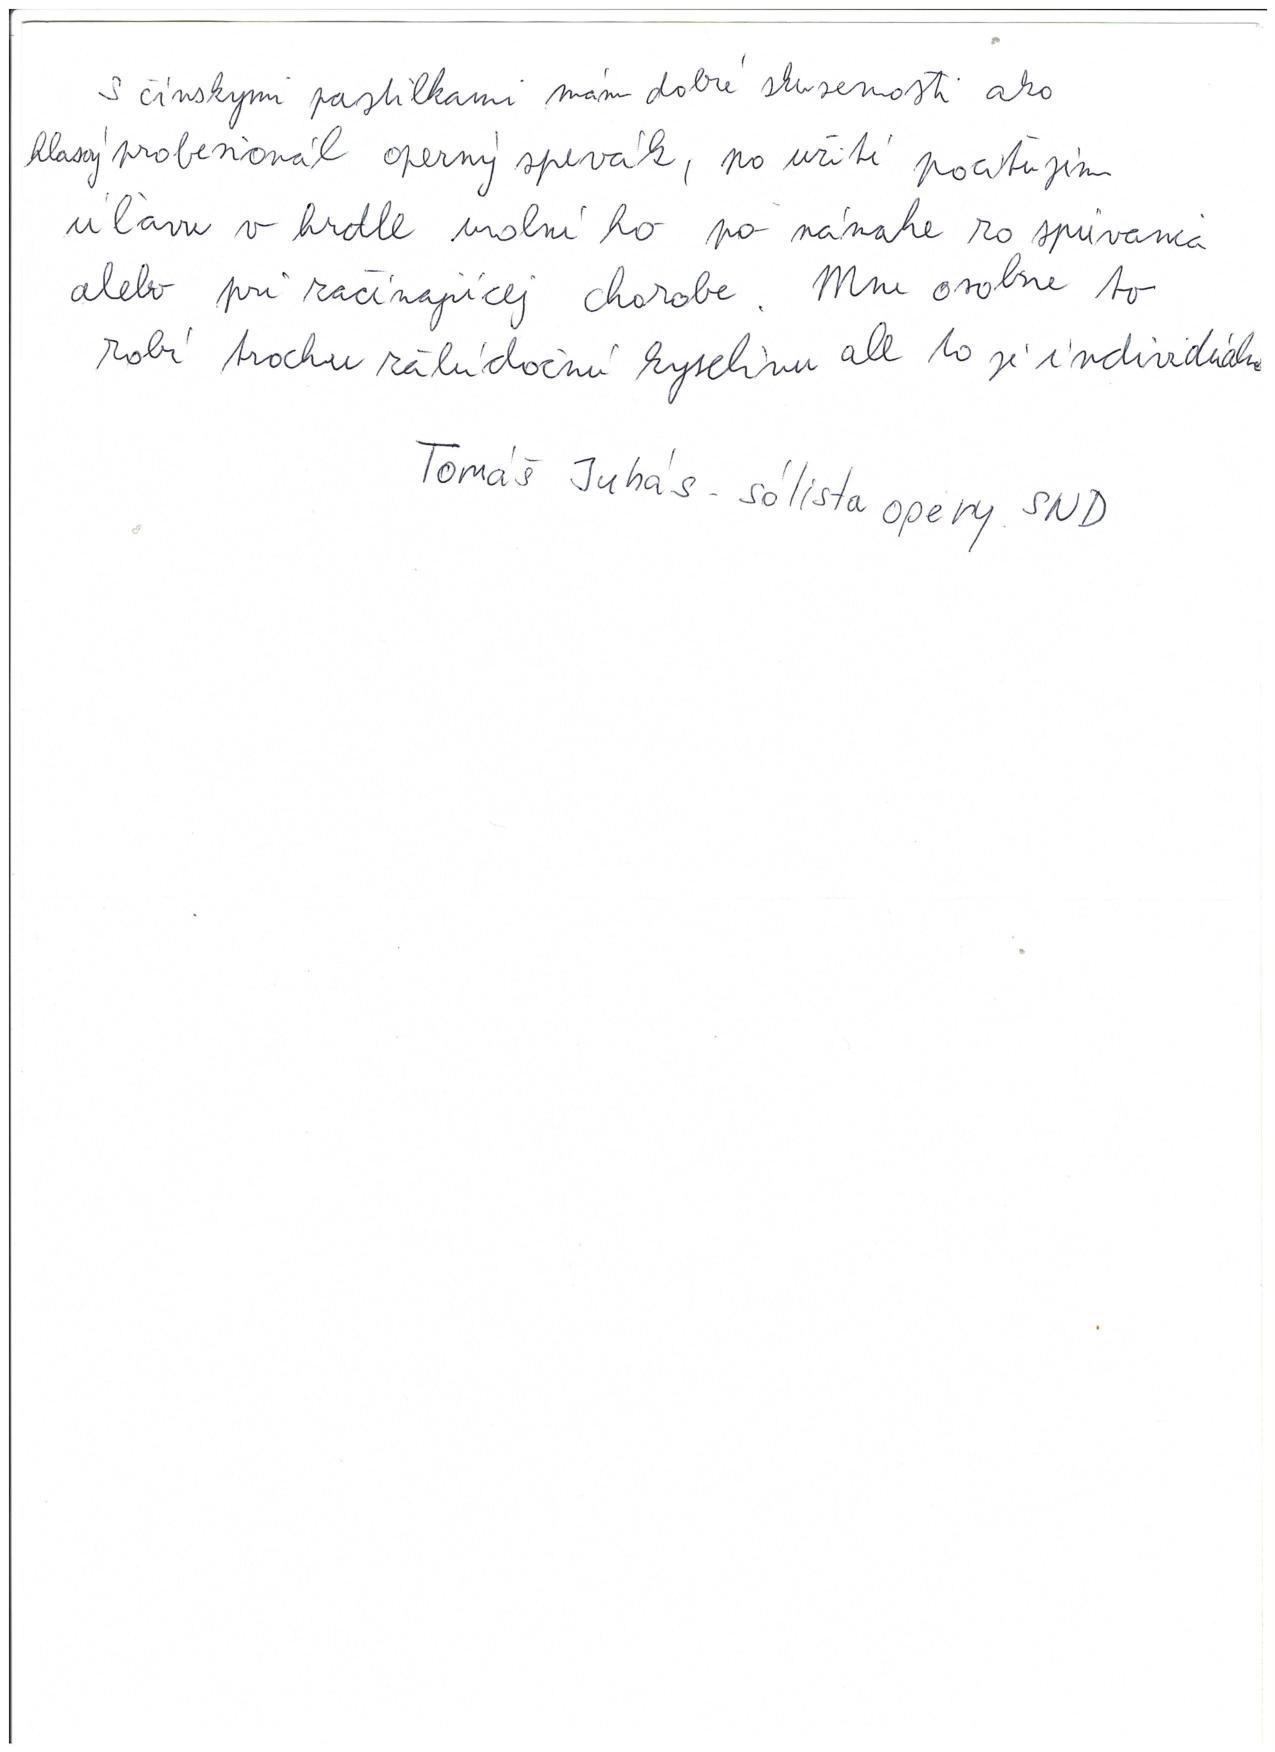 S čínskymi pastilkami mám dobré skusenosti ako
hlasový profesionál operný spevák, po užití pocitujem
úlavu v hrdle uvolní ho po námahe zo spievania
alebo pri začínajúcej chorobe. Mne osobne to
robí trochu žalúdočnú kyselinu ale to je individuálne
Tomáš Juhás - sólista opery SND